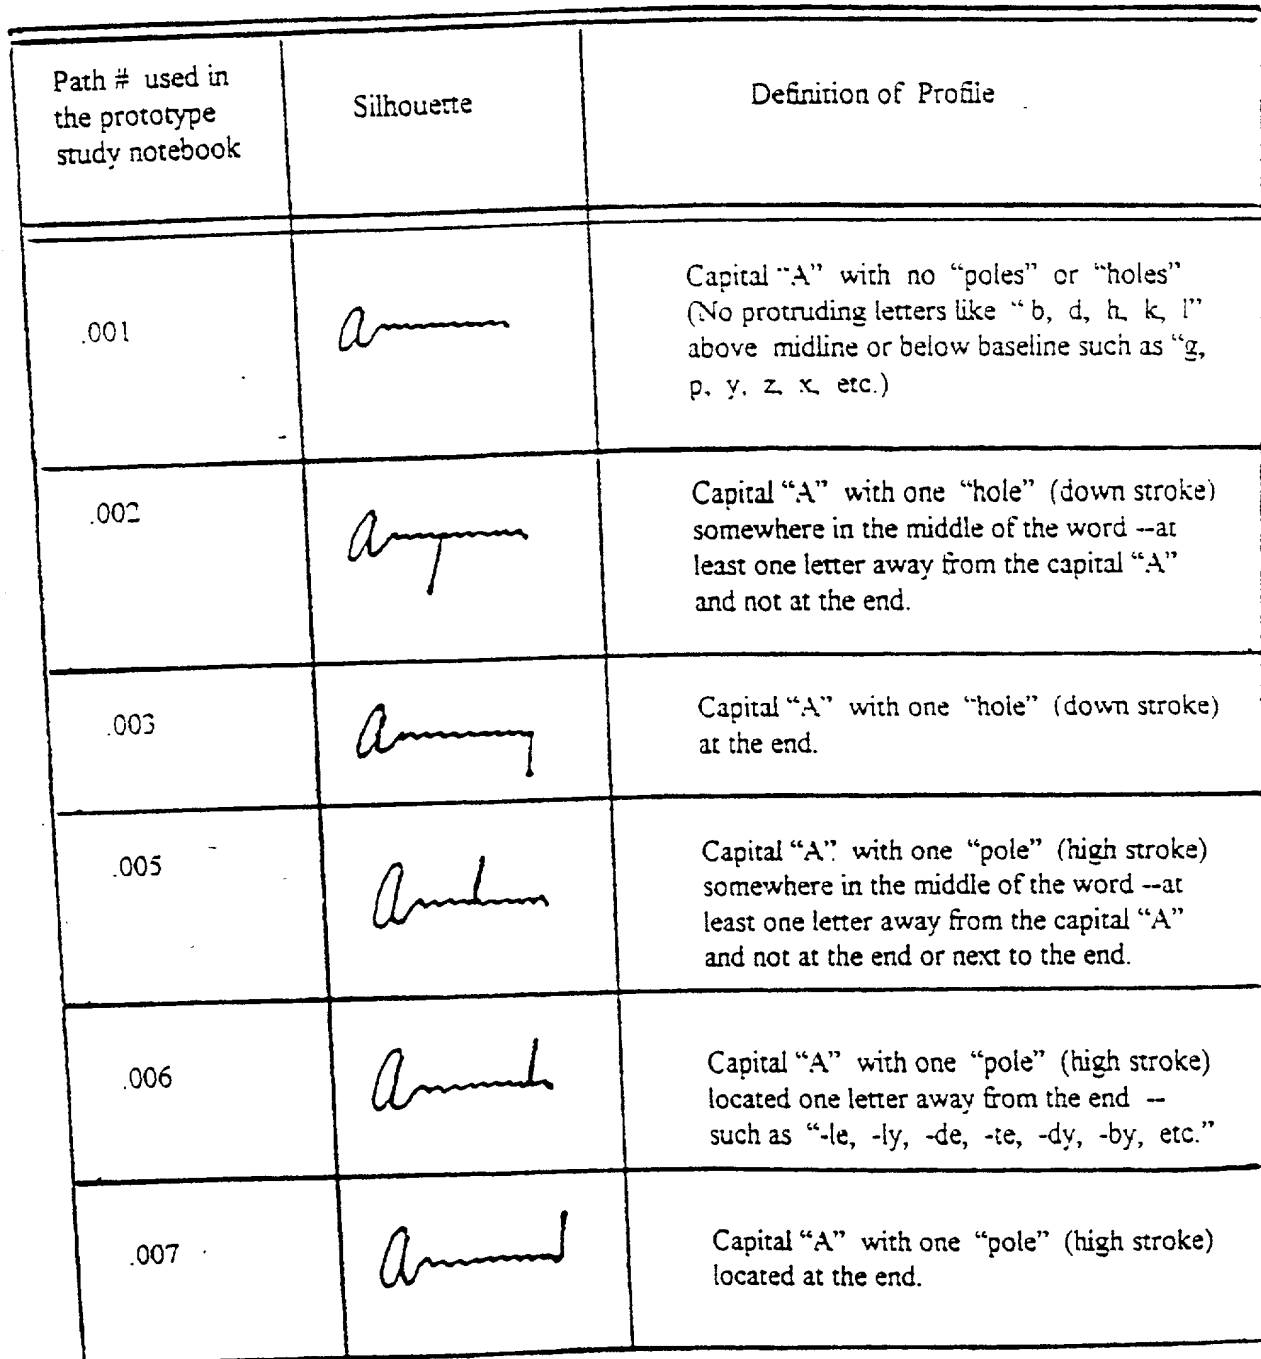 Path # used in
the prototype
study notebook
Silhouette
Definition of Profile
.001
Capital "A" with no "poles" or "holes"
(No protruding letters like " b, d, h, k, l"
above midline or below baseline such as "g,
p, y, z, x, etc.)
.002
Capital "A" with one "hole" (down stroke)
somewhere in the middle of the word --at
least one letter away from the capital "A"
and not at the end.
.003
Capital "A" with one "hole" (down stroke)
at the end.
.005
Capital "A" with one "pole" (high stroke)
somewhere in the middle of the word --at
least one letter away from the capital "A"
and not at the end or next to the end.
.006
Capital "A" with one "pole" (high stroke)
located one letter away from the end --
such as "-le, -ly, -de, -te, -dy, -by, etc."
.007
Capital "A" with one "pole" (high stroke)
located at the end.